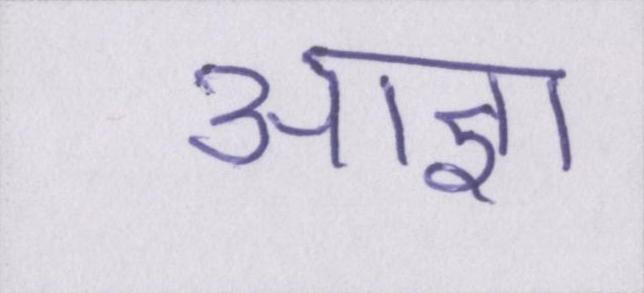 आज्ञा